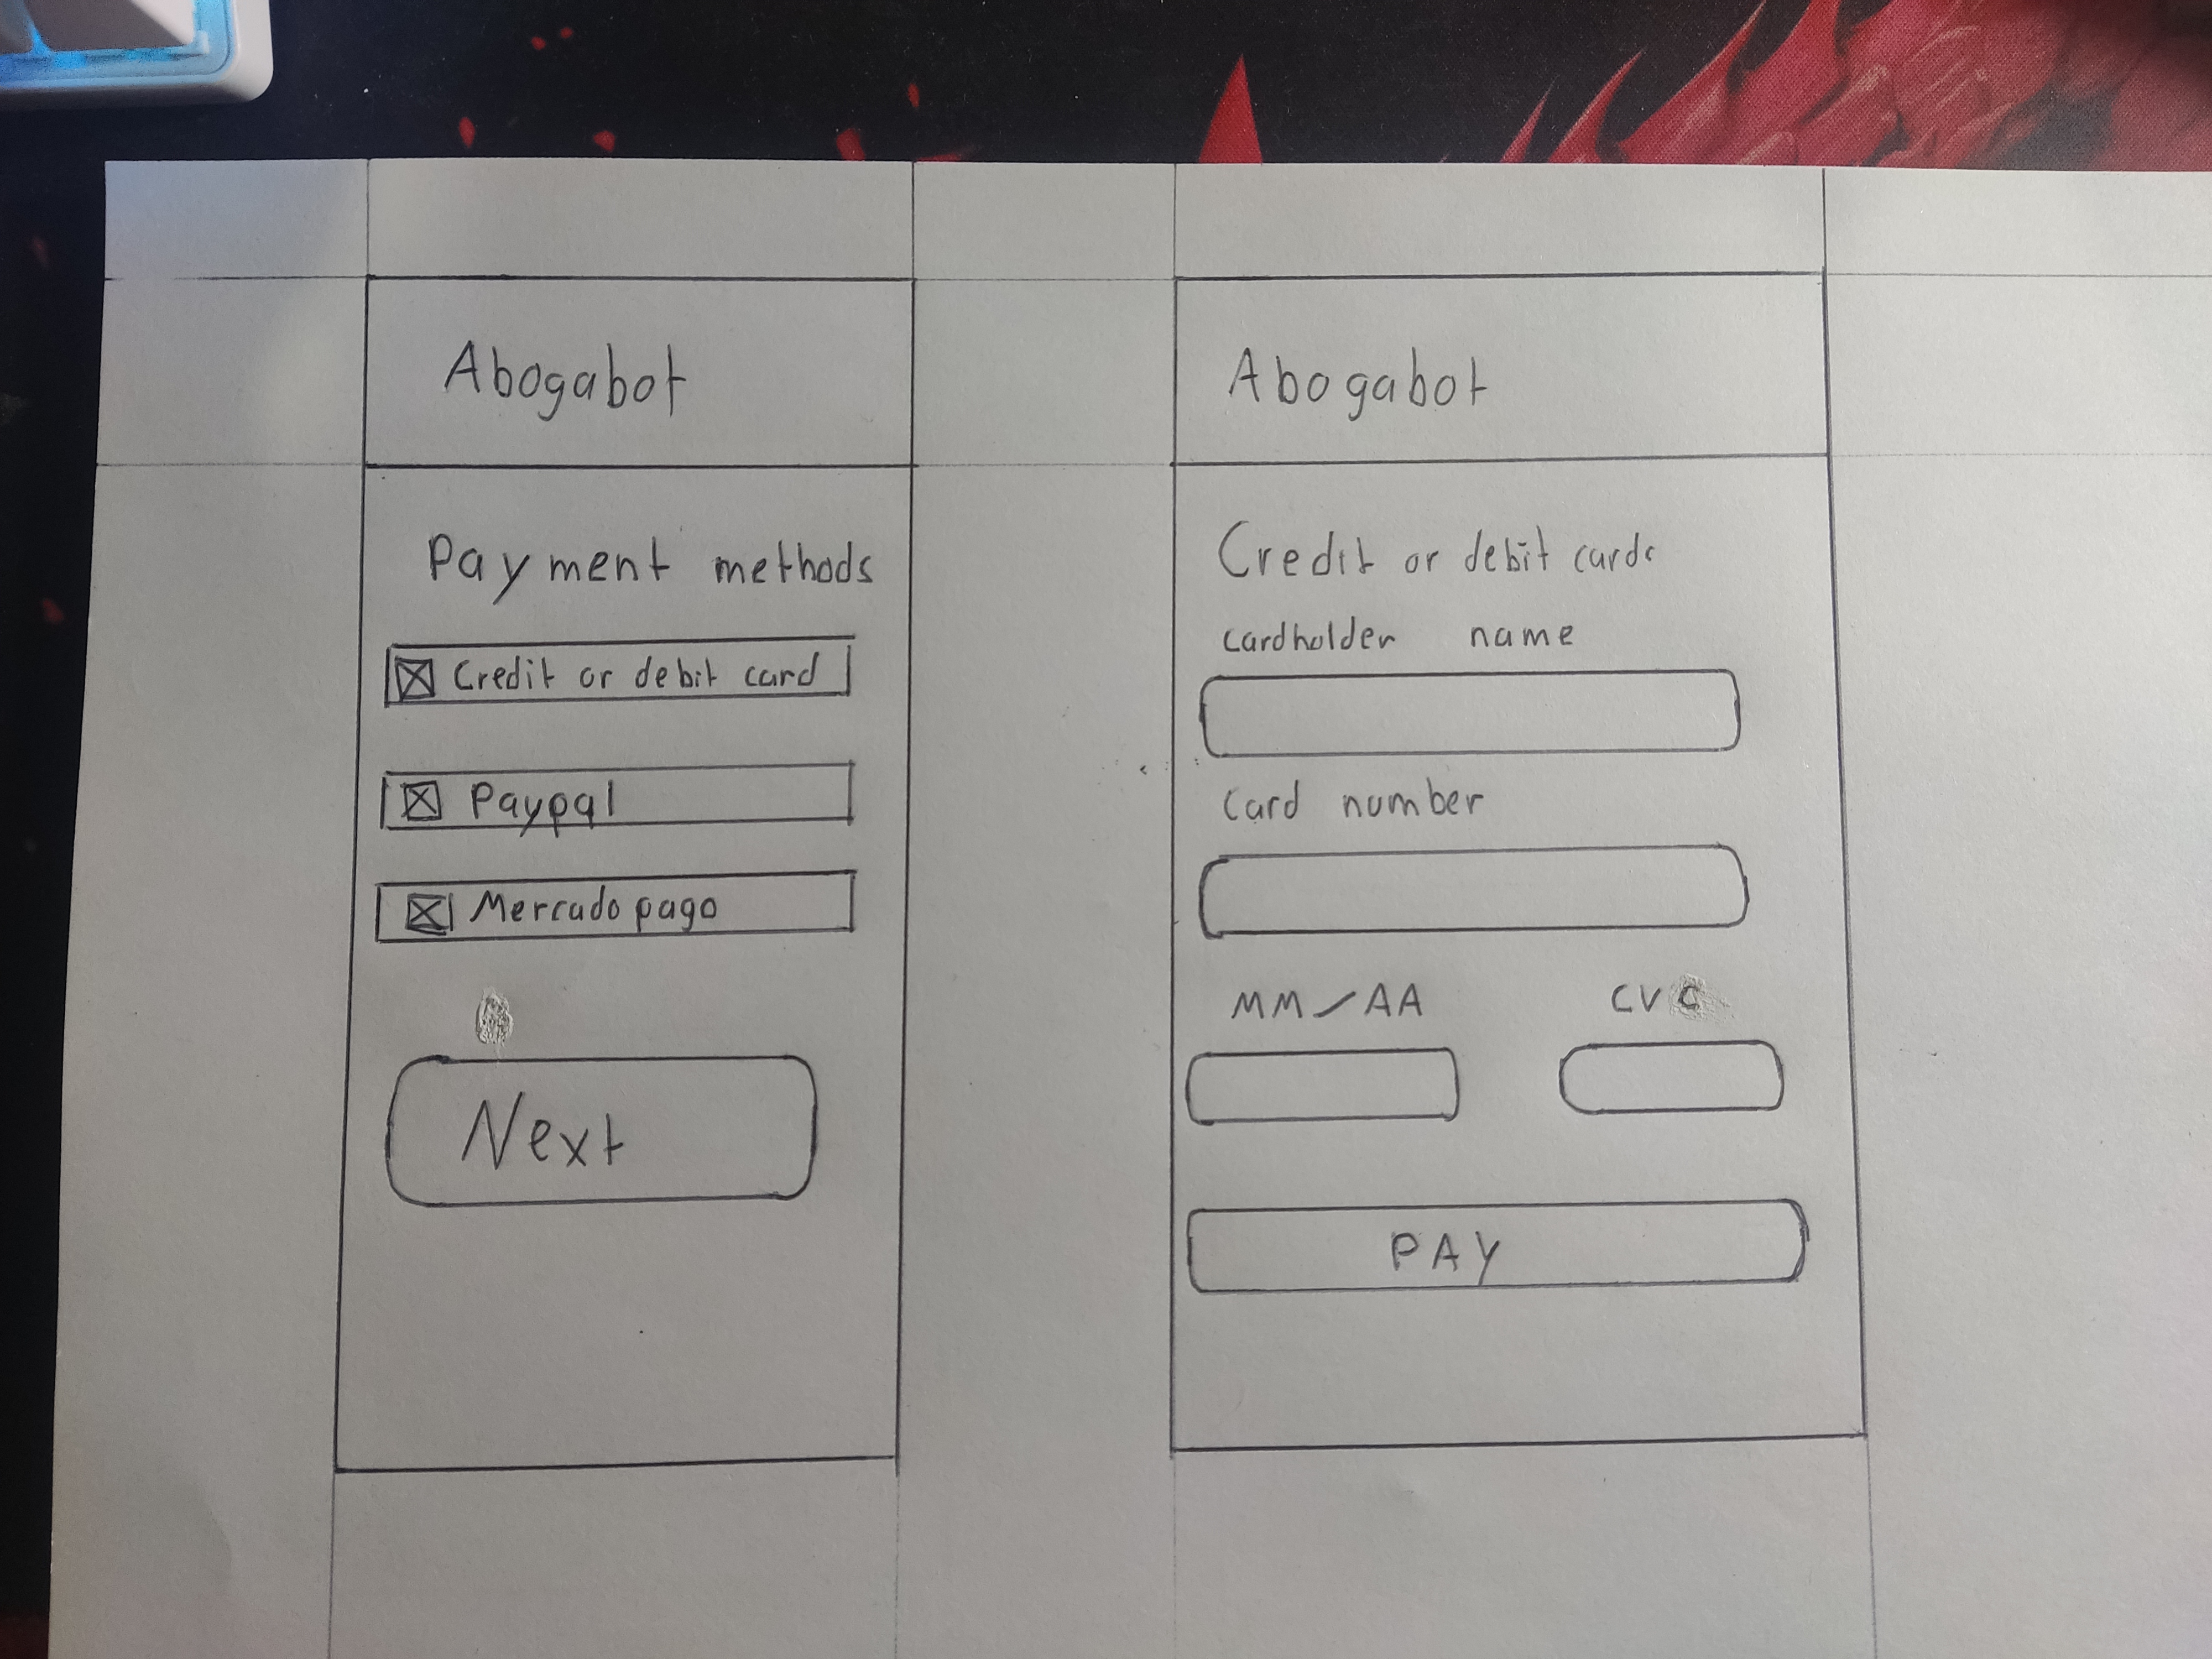 Abogabot
Payment methods
Credit or debit card
Paypal
Mercado pago
Next
Abogabot
Credit or debit cards
cardholder name
Card number
MM/AA
CVC
PAY